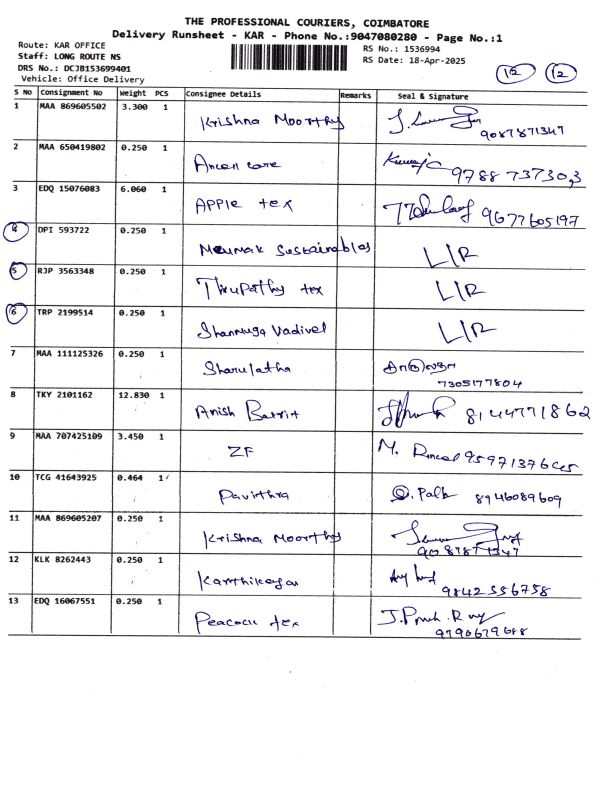 THE PROFESSIONAL COURIERS, COIMBATORE
Delivery Runsheet - KAR - Phone No.:9047080280 - Page No.:1
Route: KAR OFFICE
RS No.: 1536994
Staff: LONG ROUTE NS
RS Date: 18-Apr-2025
DRS No.: DCJB153699401
Vehicle: Office Delivery
12 12
S No Consignment No Weight PCS Consignee Details Remarks Seal & Signature
1 MAA 869605502 3.300 1 Krishna Moorthy
9087871347
2 MAA 650419802 0.250 1 care 9788737303
3 EDQ 15076083 6.060 1 APPle tex 9677605197
4 DPI 593722 0.250 1 Sustainables L/R
5 RJP 3563348 0.250 1 Thirupathy tex L/R
6 TRP 2199514 0.250 1 Shanmuga Vadivel L/R
7 MAA 111125326 0.250 1 Sharulatha சாருலதா
7305177804
8 TKY 2101162 12.830 1 Anish 8144771862
9 MAA 707425109 3.450 1 ZF M.
10 TCG 41643925 0.464 1 Pavithra 8946089609
11 MAA 869605207 0.250 1 Krishna Moorthy
9087871347
12 KLK 8262443 0.250 1 Karthikeyan
9842556758
13 EDQ 16067551 0.250 1 Peacock tex
9790679688